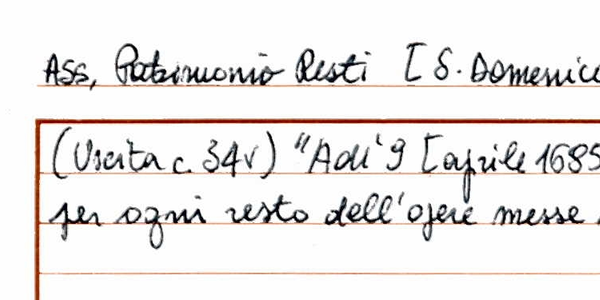 ASS, Patrimonio Resti [S. Domenico
(Uscita c. 34v) "Adi' 9 [aprile 1685
per ogni resto dell'opere messe